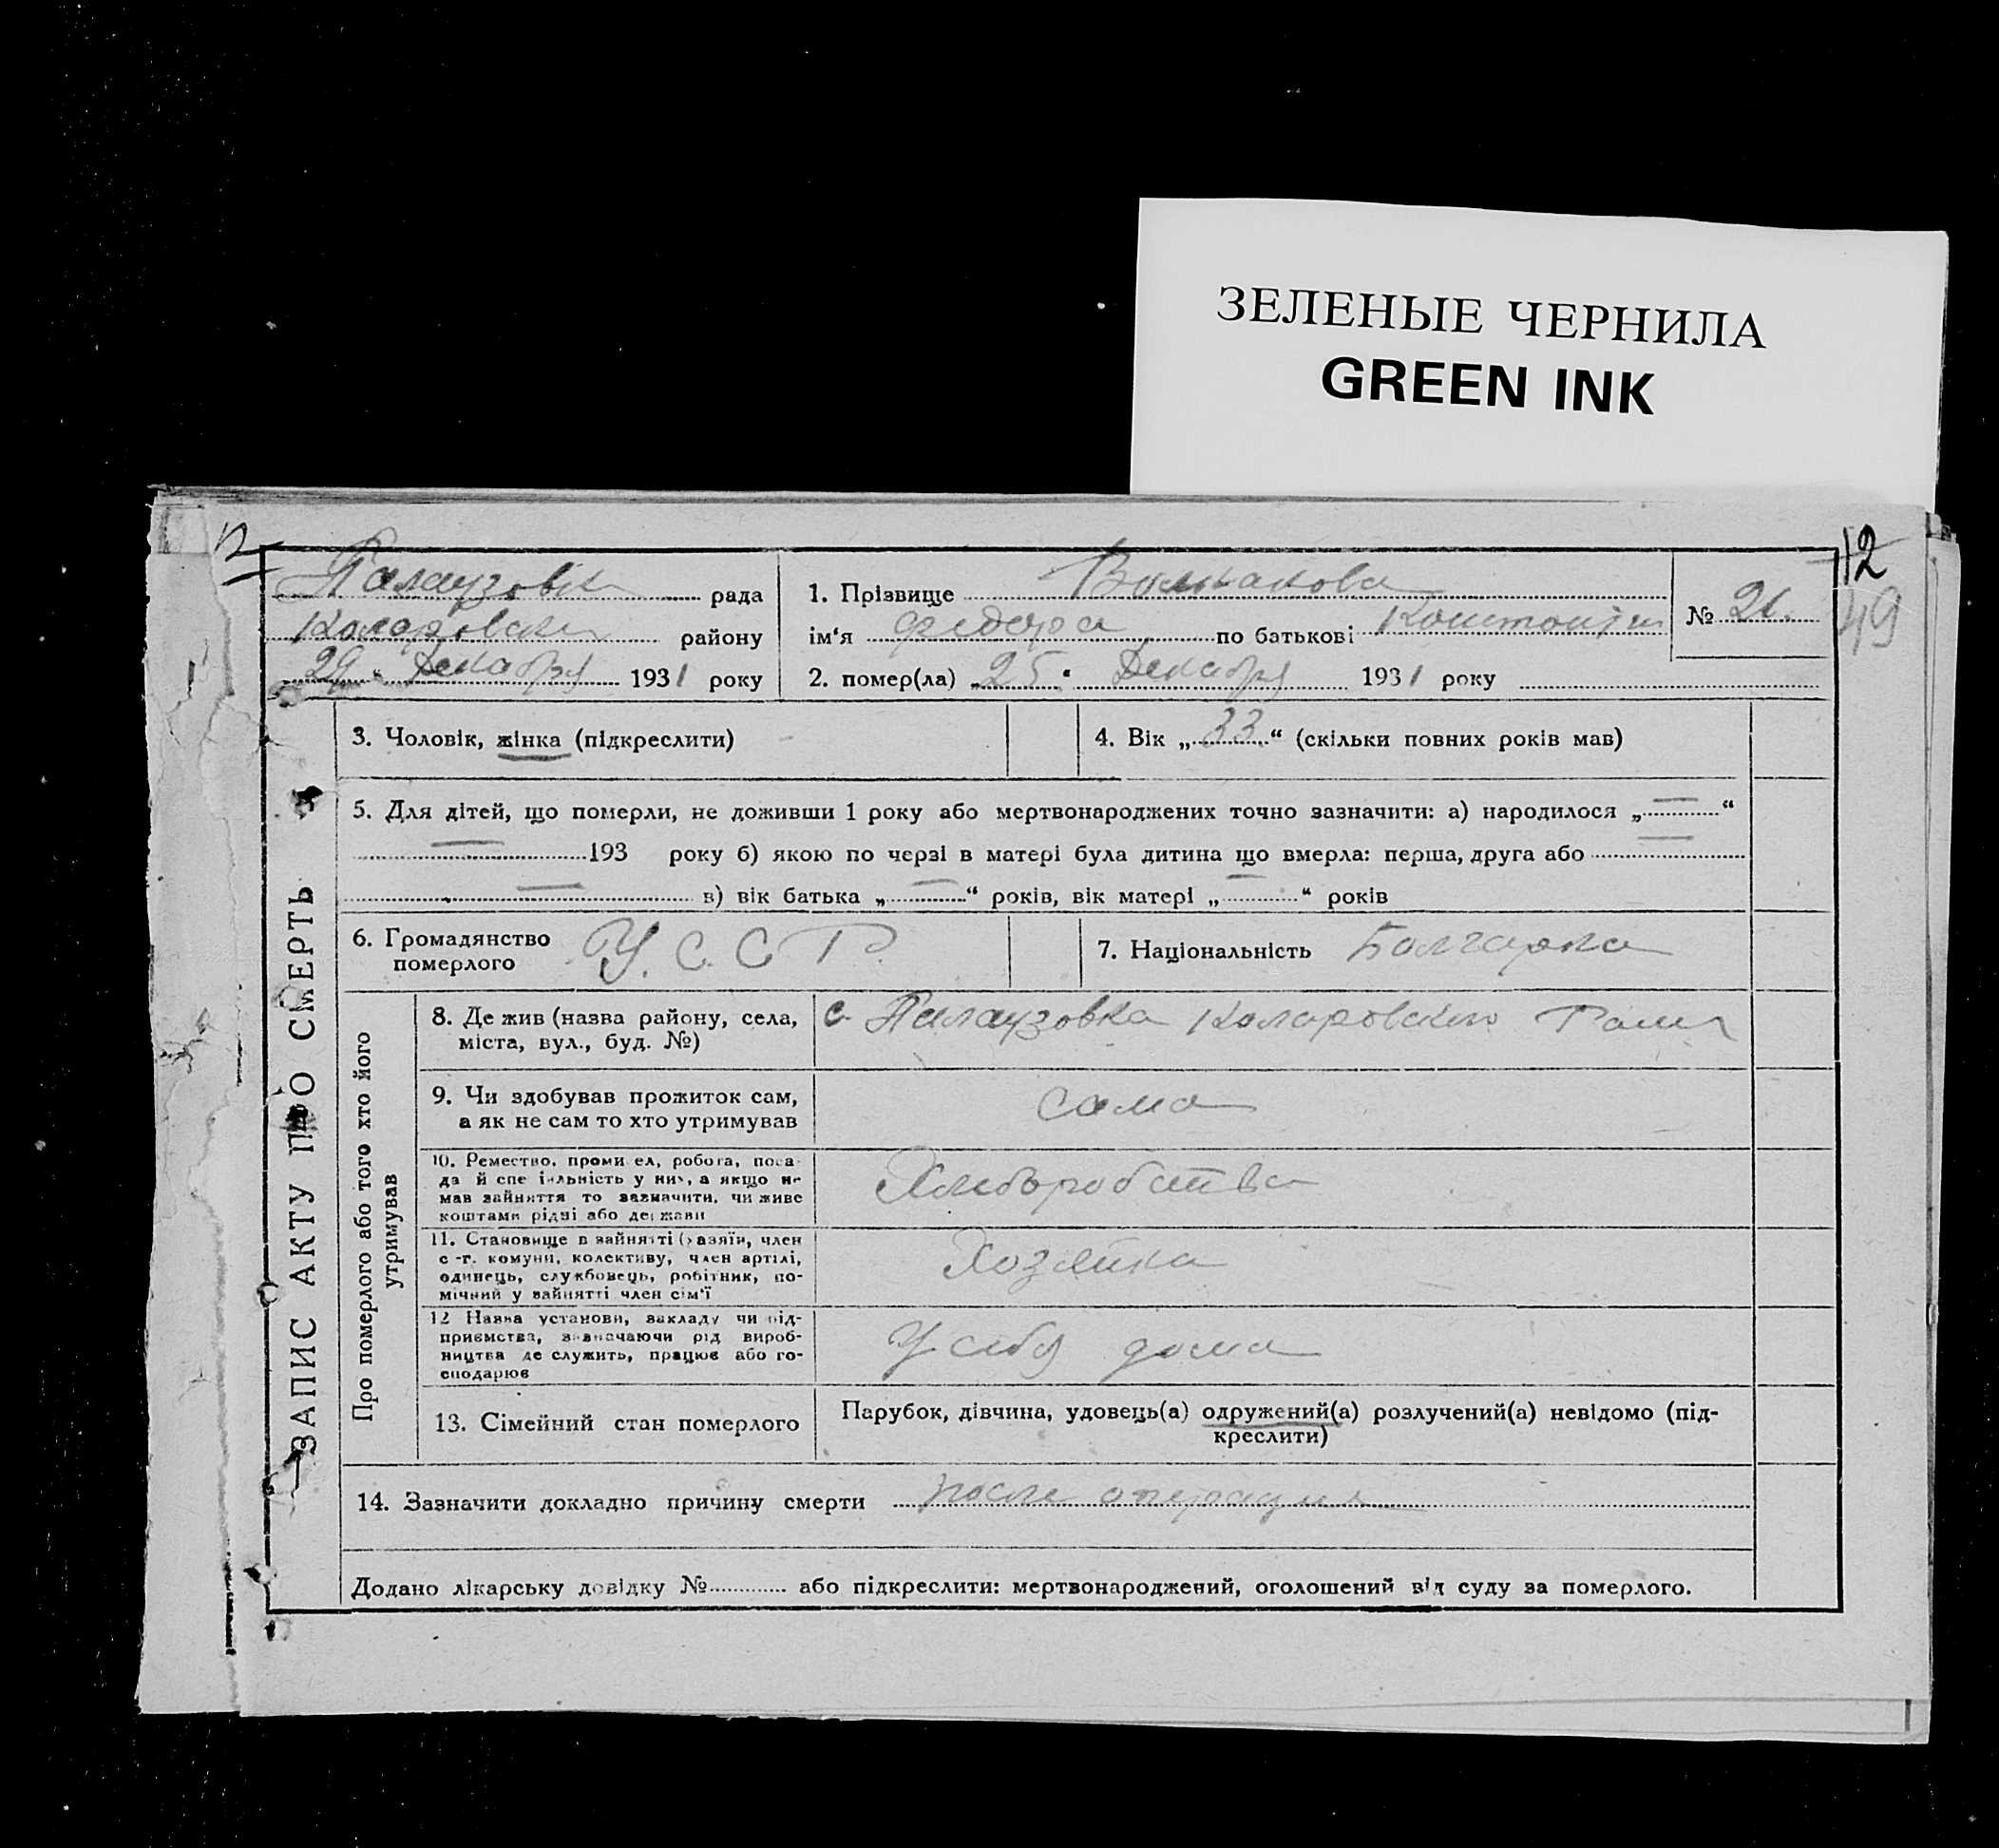 ЗЕЛЕНЫЕ ЧЕРНИЛА
GREEN INK
12
12
49
рада
Коларовски району
29 " Декабря 1931 року
1. Прізвище Волкакова
ім‘я Федора по батькові
2. помер(ла) „25 " Декабря 1931 року
№ 21.
ЗАПИС АКТУ ПРО СМЕРТЬ
3. Чоловік, жінка (підкреслити)
4. Вік „33“ (скільки повних років мав)
5. Для дітей, що померли, не доживши 1 року або мертвонароджених точно зазначити: а) народилося „—“
— 193 року б) якою по черзі в матері була дитина що вмерла: перша, друга або —
— в) вік батька „—“ років, вік матері „—“ років
6. Громадянство
померлого
У. С. С. Р.
7. Національність Болгарка
Про померлого або того хто його
утримував
8. Де жив (назва району, села,
міста, вул., буд. №)
с. Палаузовка Коларовского
9. Чи здобував прожиток сам,
а як не сам то хто утримував
сама
10. Ремество, промисел, робота, поса-
да й спеціяльність у них, а якщо не
мав зайняття то зазначити, чи живе
коштами рідні або держави
Хлеборобства
11. Становище в зайнятті (хазяїн, член
с.-г. комуни, колективу, член артілі,
одинець, службовець, робітник, по-
мічний у зайнятті член сім‘ї
Хозяйка
12 Назва установи, закладу чи під-
приємства, зазначаючи рід вироб-
ництва де служить, працює або го-
сподарює
У себя дома
13. Сімейний стан померлого
Парубок, дівчина, удовець(а) одружений(а) розлучений(а) невідомо (під-
креслити)
14. Зазначити докладно причину смерти после операции
Додано лікарську довідку № або підкреслити: мертвонароджений, оголошений від суду за померлого.